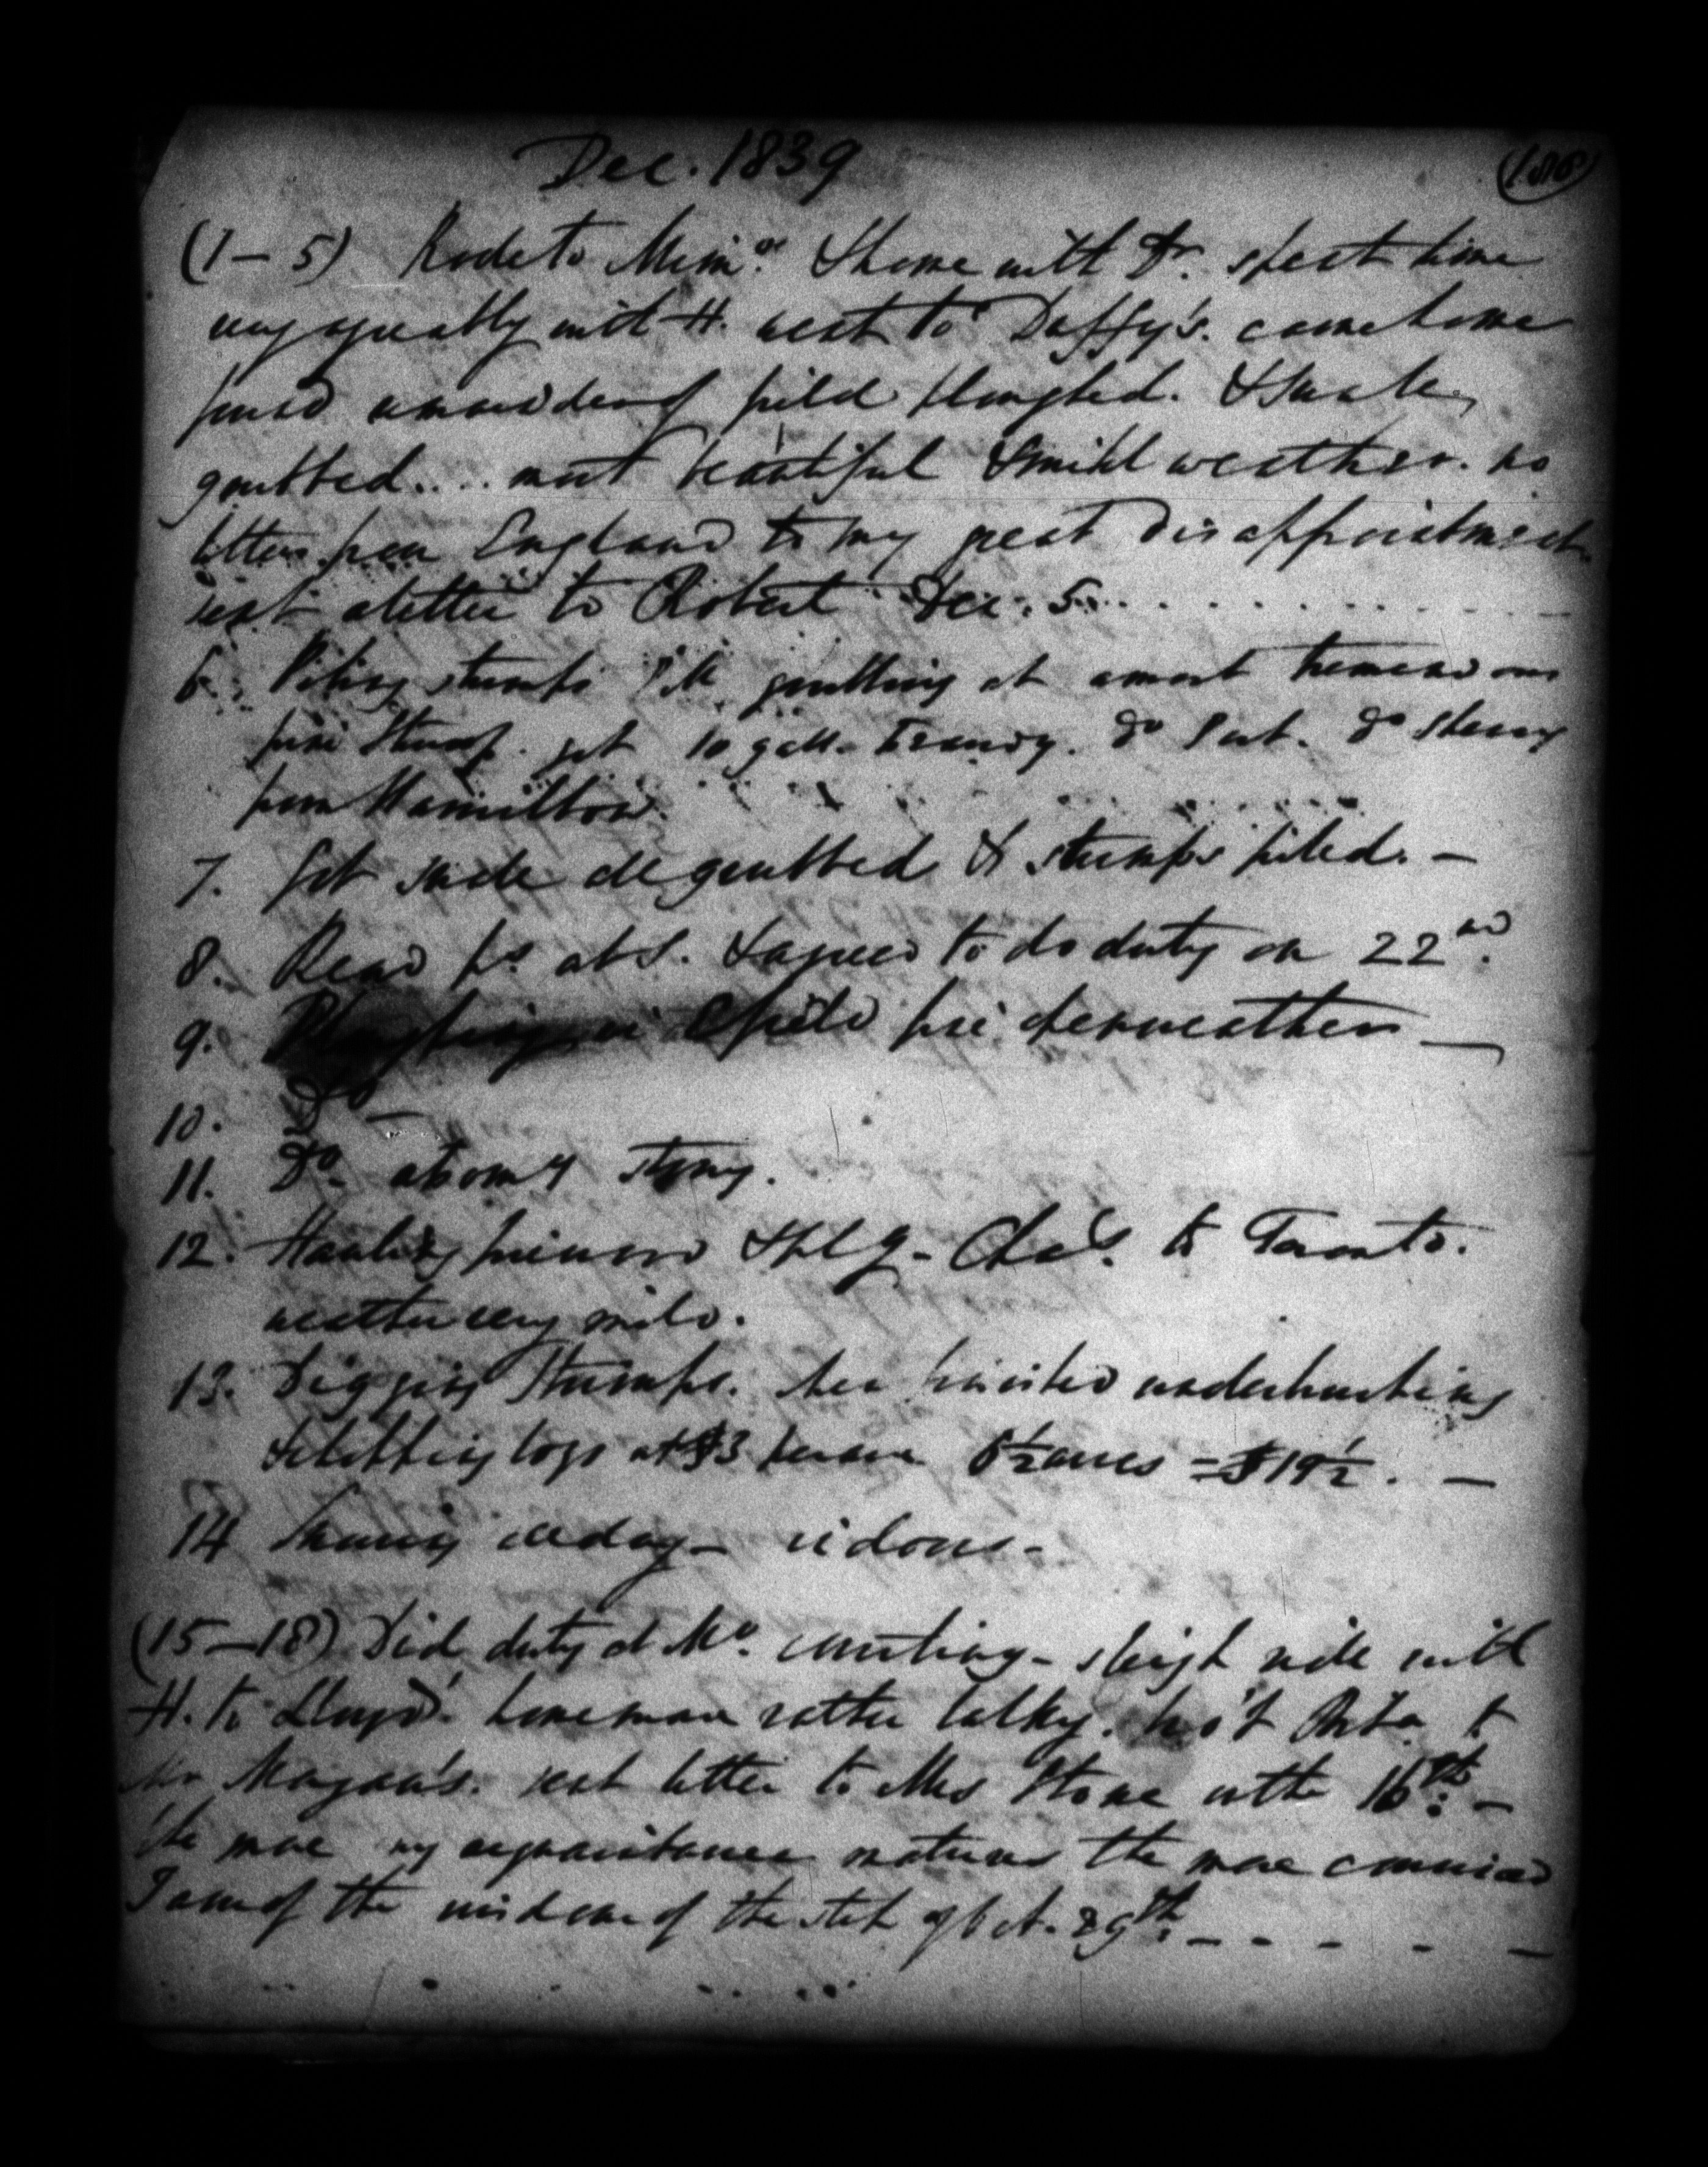 Dec. 1839
(1–5) Rode to Mimo. & home with Dr. spent time
very agreeably with H. went to Daffy's. came home
found remainder of field ploughed. & swale
grubbed.... most beautiful & mild weather. no
letters from England to my great disappointment
sent a letter to Robert Dec. 5.
6. Piling stumps grubbing at a most tremendous
pine stump. got 10 galls. brandy. do Port. do sherry
from Hamilton.
7. Got swale all grubbed & stumps piled. –
8. Read prs at S. & agreed to do duty on 22nd.
9. Ploughing in field fine open weather –
10. Do –
11. Do. stormy.
12. Hauling firewood Chas. to Toronto.
weather very mild.
13. Digging Stumps. men finished underbrushing
& chopping logs at $3 per acre 6½ acres = $19½. –
14 Snowing all day – indoors –
(15–18) Did duty at Mo. courting – sleigh ride with
H. to Lloyd's. horse mare rather balky. to
Mr Magan's. sent letter to Mrs Stone on the 16th. –
the more my acquaintance matures the more convinced
I am of the wisdom of the step of Oct. 29th. – – – –